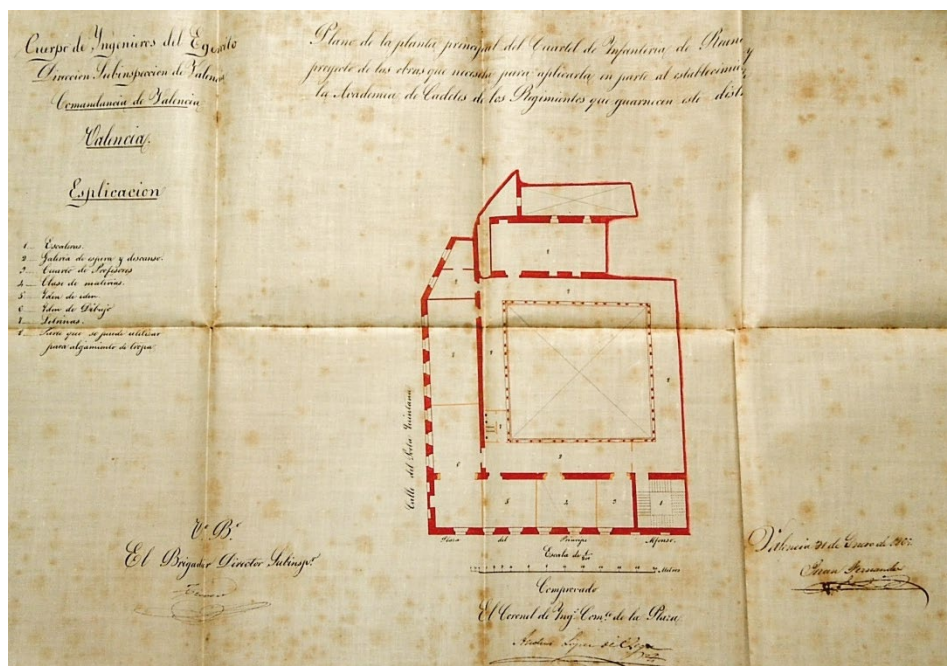 Cuerpo de Ingenieros del Egercito
Direccion Subinspeccion de Valencia
Comandancia de Valencia
Valencia.
Esplicacion
1 Escaleras.
2 Galeria de espera y descanso.
3 Cuarto de Profesores
4 Clase de materias.
5 Yden de iden
6 Yden de Dibujo
7 Letrinas.
8 Parte que se puede utilizar
para alojamiento de tropa
Plano de la planta principal del Cuartel de Infanteria de y
proyecto de las obras que necesita para aplicarla en parte al establecim
la Academia de Cadetes de los Regimientos que guarnecen este dist.
Calle del Poeta Quintana
Plaza del Principe Alfonso.
Escala de
Metros
Vº Bº
El Brigadier Director Subinspr.
Comprovado
El Coronel de Ings. Comte. de la Plaza
Valencia 31 de Enero de
Juan Fernandez